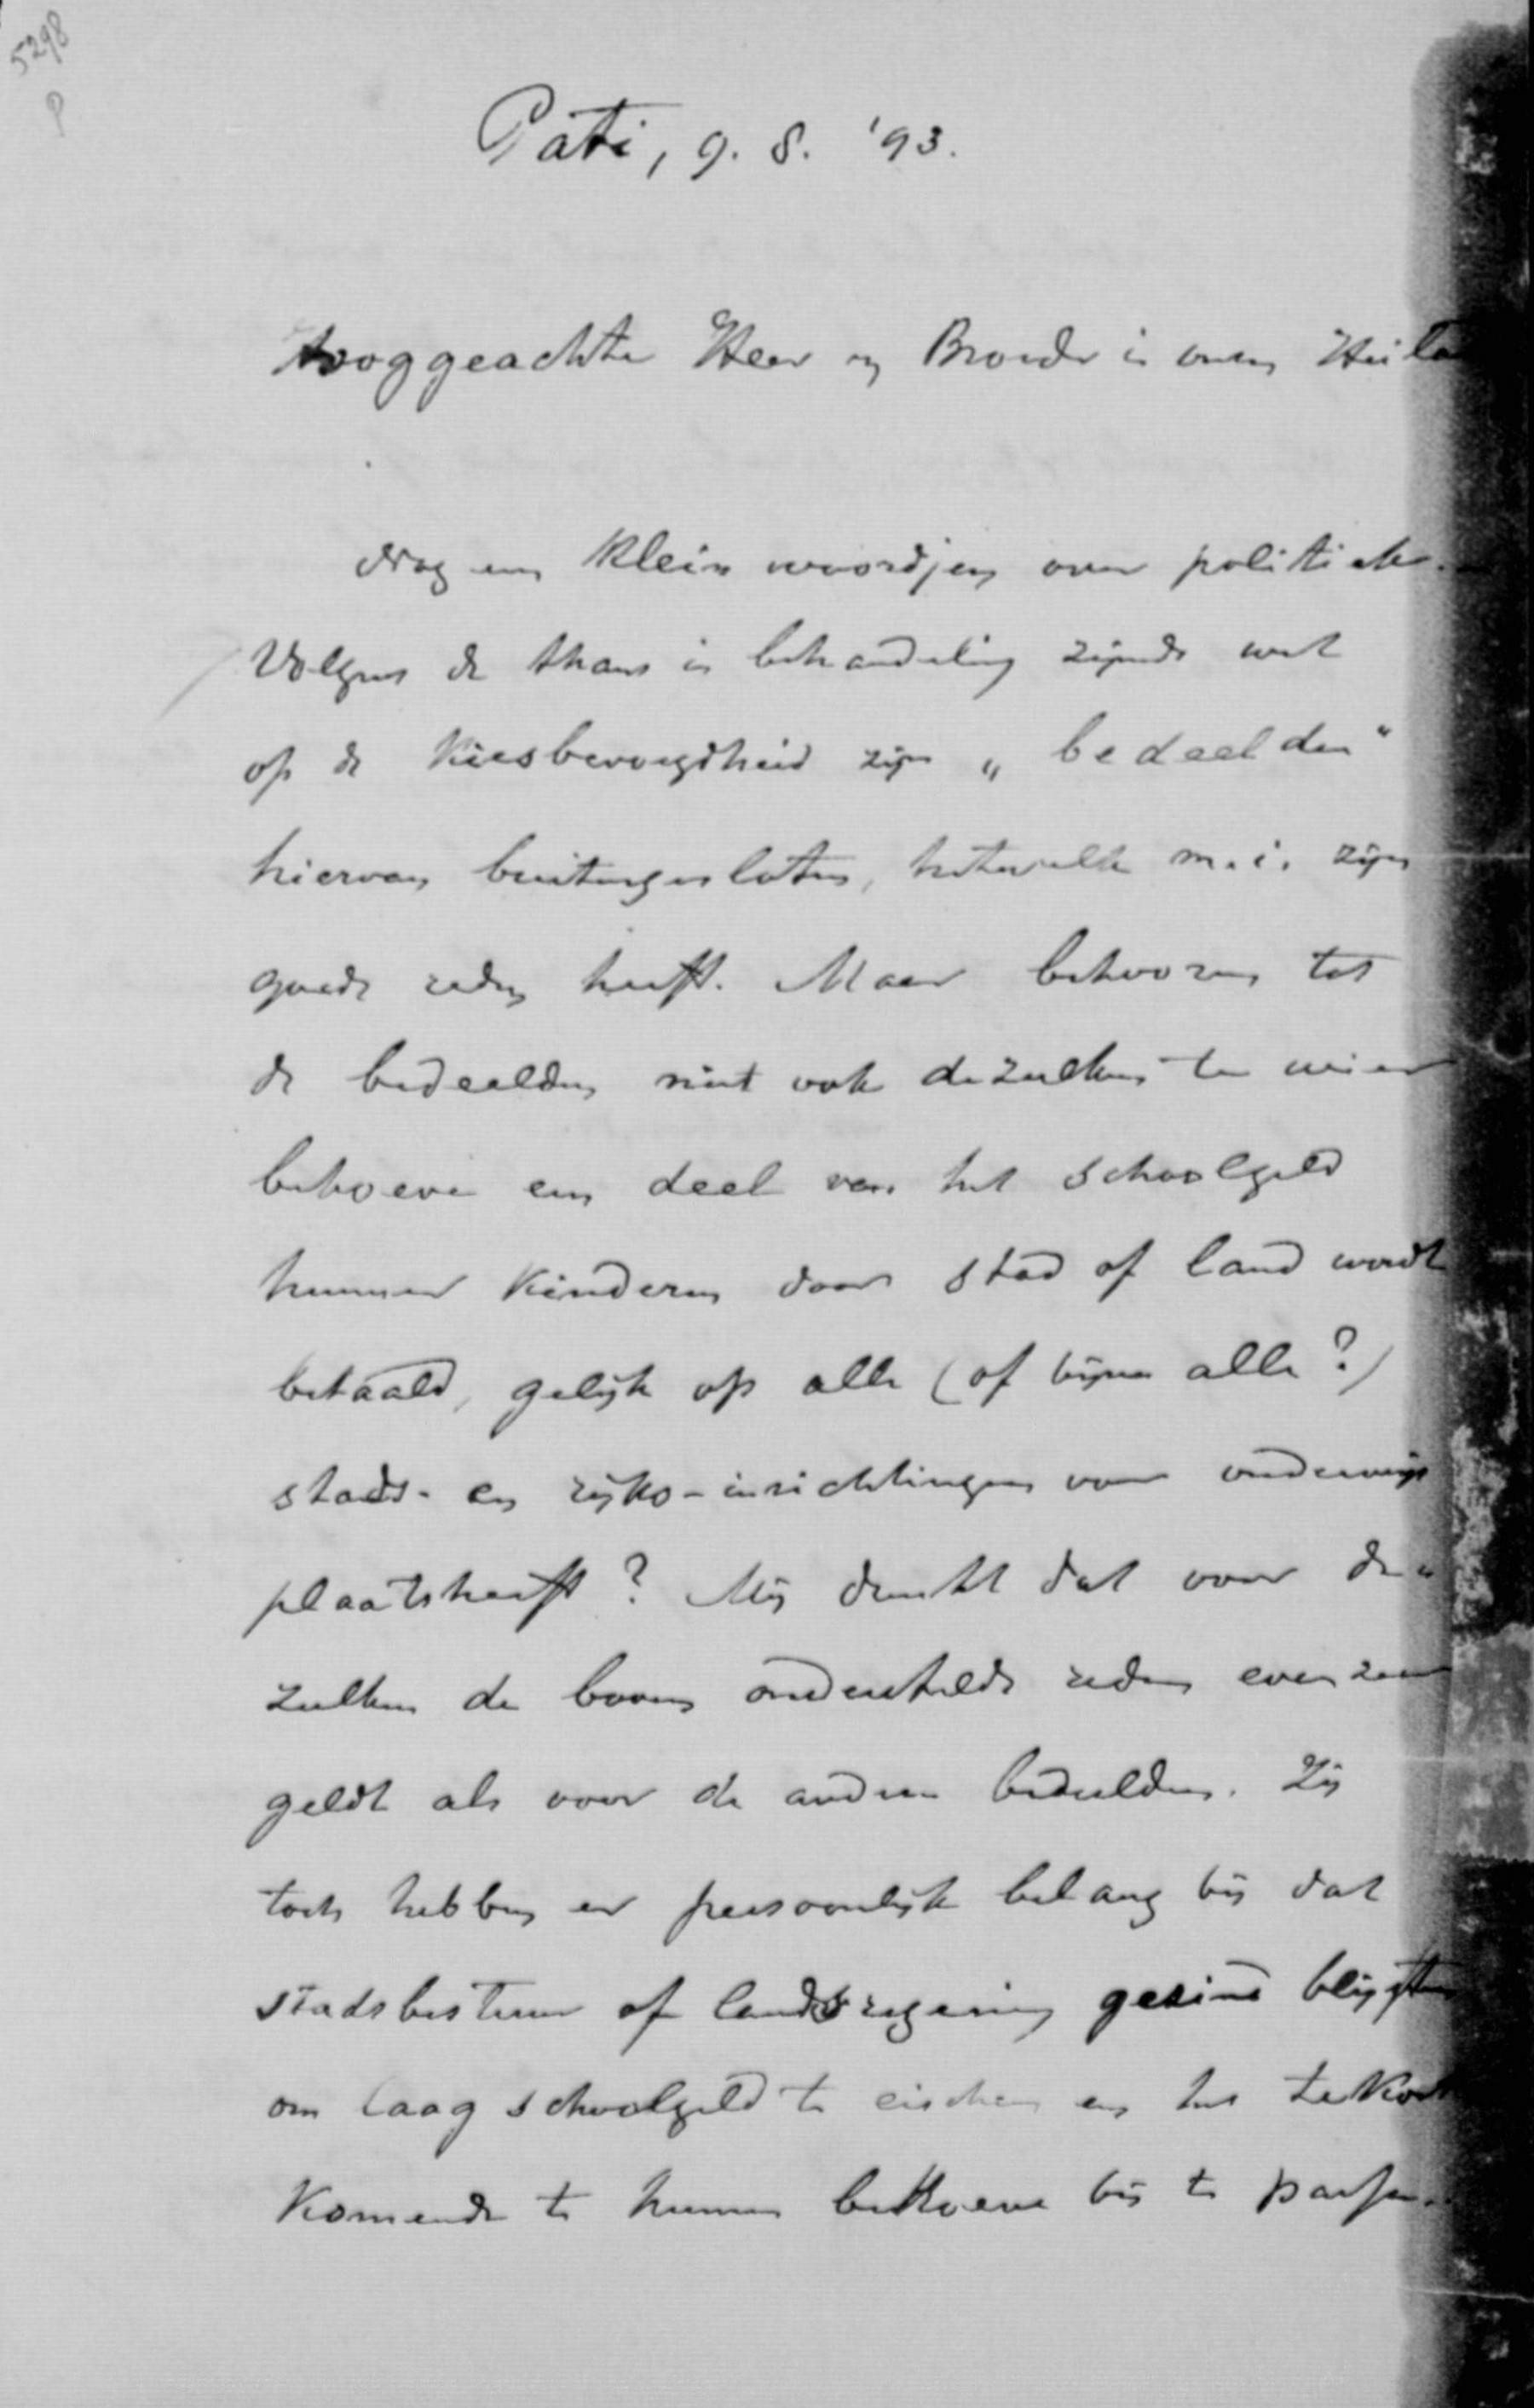 5298
P
Pati, 9. 8. '93.
Hooggeachte Heer en Broeder in onzen Heila
Nog een klein woordjen over politiek.
Volgens de thans in behandeling zijnde wet
op de kiesbevoegdheid zijn „bedeelden"
hiervan buitengesloten, hetwelk m.i. zijn
goede reden heeft. Maar behooren tot
de bedeelden niet ook dezulken te wier
behoeve een deel van het schoolgeld
hunner kinderen door stad of land wordt
betaald, gelijk op alle (of bijna alle?)
stads- en rijks-inrichtingen voor onderwijs
plaatsheeft? Mij dunkt dat voor de-
zulken de boven onderstelde reden evenzeer
geldt als voor de andere bedeelden. Zij
toch hebben er persoonlijk belang bij dat
stadsbestuur of landsregering gezind blijft
om laag schoolgeld te eischen en het tekort
komende te hunnen behoeve bij te passen.